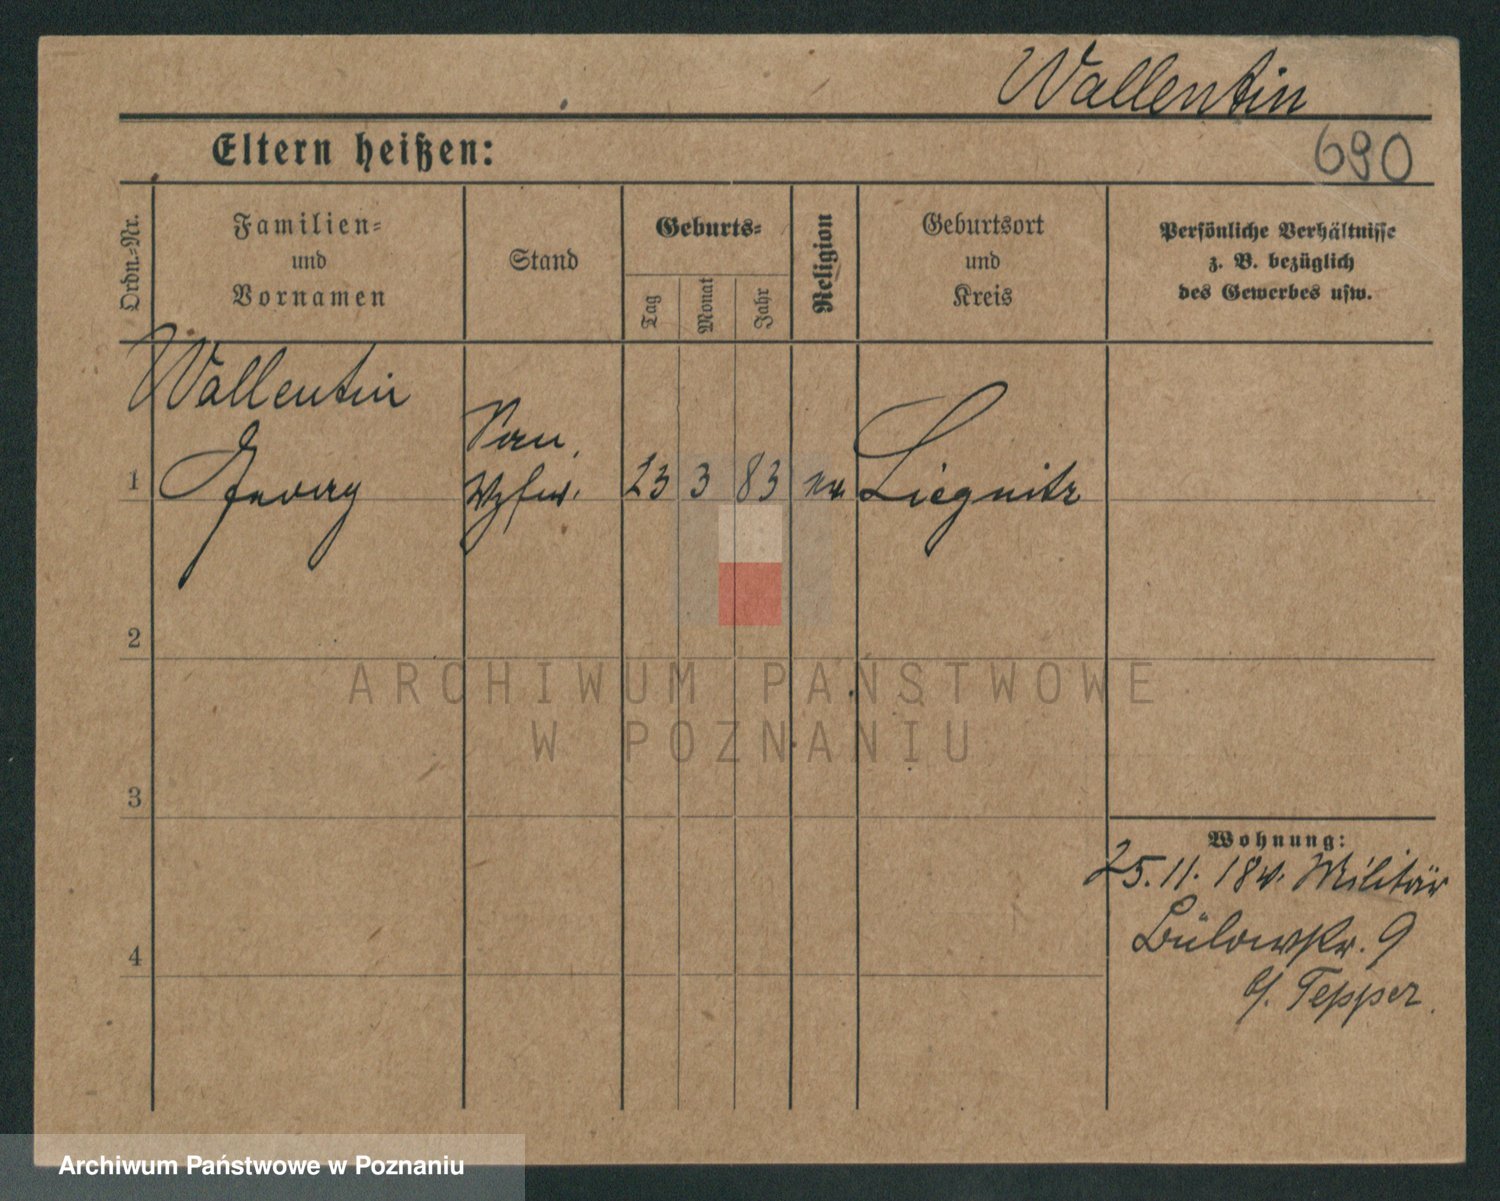 Wallentin
Eltern heißen:
690
Ordn.-Nr.
Familien-
und
Vornamen
Stand
Geburts-
Tag
Monat
Jahr
Religion
Geburtsort
und
Kreis
Persönliche Verhältnisse
z. B. bezüglich
des Gewerbes usw.
Wallentin
1 Georg
Vzfw.
23 3 83
Liegnitz
2
3
4
Wohnung:
25.11.18 v. Militär
Bülowstr. 9
b/. Tepper.
ARCHIWUM PAŃSTWOWE
W POZNANIU
Archiwum Państwowe w Poznaniu